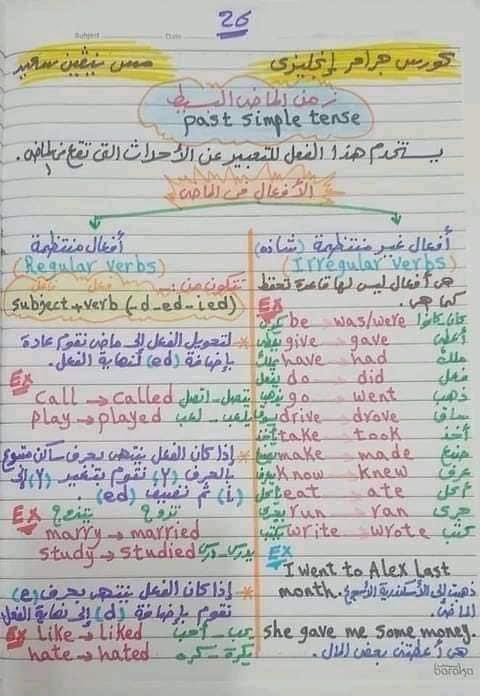 26
Subject Date
كورس جرامر إنجليزى مس نيڤين سعيد
زمن الماضى البسيط
past simple tense
يستخدم هذا الفعل للتعبير عن الأحداث التى تقع فى الماضى.
الأفعال فى الماضى
أفعال غير منتظمة (شاذه)
(Irregular verbs)
هى أفعال ليس لها قاعدة تحفظ
كما هى.
Ex
be → was/were كان كانوا
يعطى give → gave أعطى
يملك have → had ملك
يفعل do → did فعل
يذهب go → went ذهب
يسوق drive → drove ساق
يأخذ take → took أخذ
يصنع make → made صنع
يعرف know → knew عرف
يأكل eat → ate أكل
يجرى run → ran جرى
يكتب write → wrote كتب
Ex
I went to Alex last
month. ذهبت إلى الأسكندرية
الماضى.
She gave me some money.
هى أعطتنى بعض المال.
أفعال منتظمة
(Regular verbs)
تتكون من:ـ
فاعل فعل
subject + verb (-d-ed-ied)
* لتحويل الفعل إلى ماضى نقوم عادة
بإضافة (ed) لنهاية الفعل.
Ex
call → called يتصل - اتصل
play → played يلعب - لعب
* إذا كان الفعل ينتهى بحرف ساكن متبوع
بالحرف (y) نقوم بتغيير (y) إلى
(i) ثم نضيف (ed).
Ex يتزوج تزوج
marry → married
study → studied يدرس - درس
* إذا كان الفعل ينتهى بحرف (e)
نقوم بإضافة (d) إلى نهاية الفعل
Ex like → liked يحب - أحب
hate → hated يكره - كره
baraka